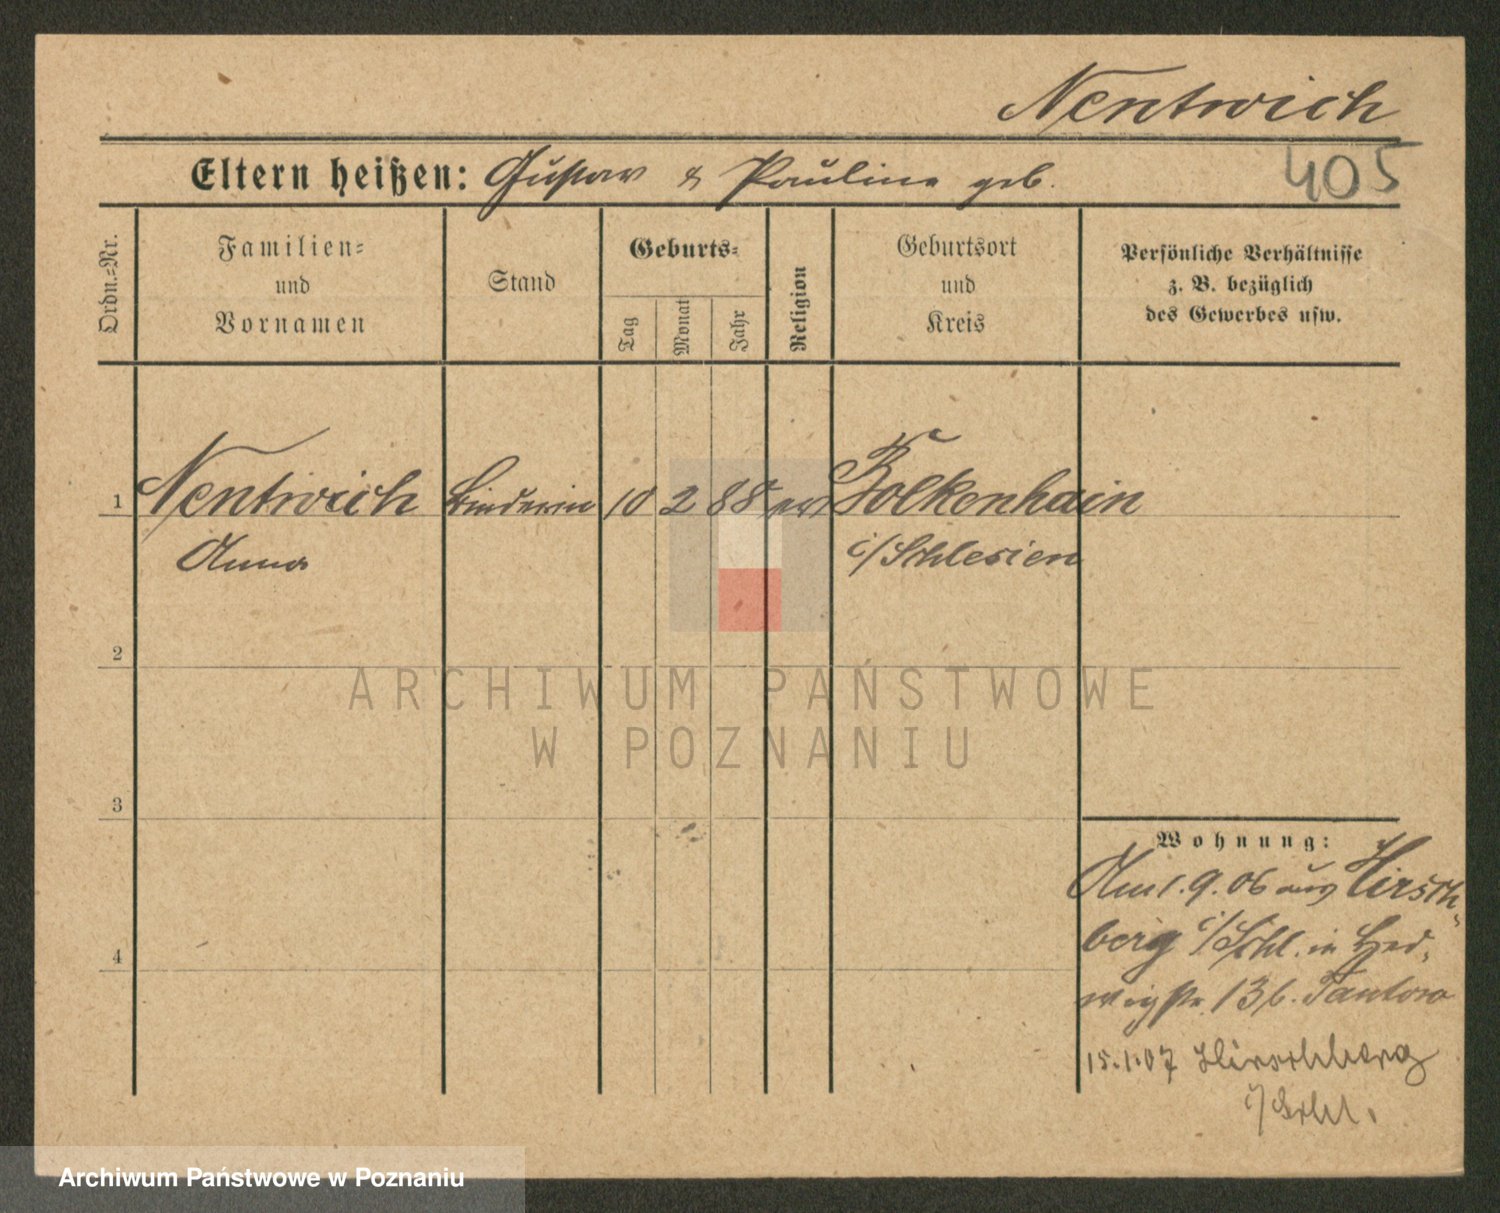 Nentwich
Eltern heißen: Gustav & Pauline geb.
405
Ordn.=Nr.
Familien=
und
Vornamen
Stand
Geburts=
Tag
Monat
Jahr
Religion
Geburtsort
und
Kreis
Persönliche Verhältnisse
z. B. bezüglich
des Gewerbes usw.
1 Nentwich Binderin 10 2 88 ev Bolkenhain
Anna i/Schlesien
2
3
4
Wohnung:
Am 1.9.06 aus Hirsch-
berg i/Schl. in Hed-
wigstr. 13 b.
15.1.07 Hirschberg
i/Schl.
ARCHIWUM PAŃSTWOWE
W POZNANIU
Archiwum Państwowe w Poznaniu